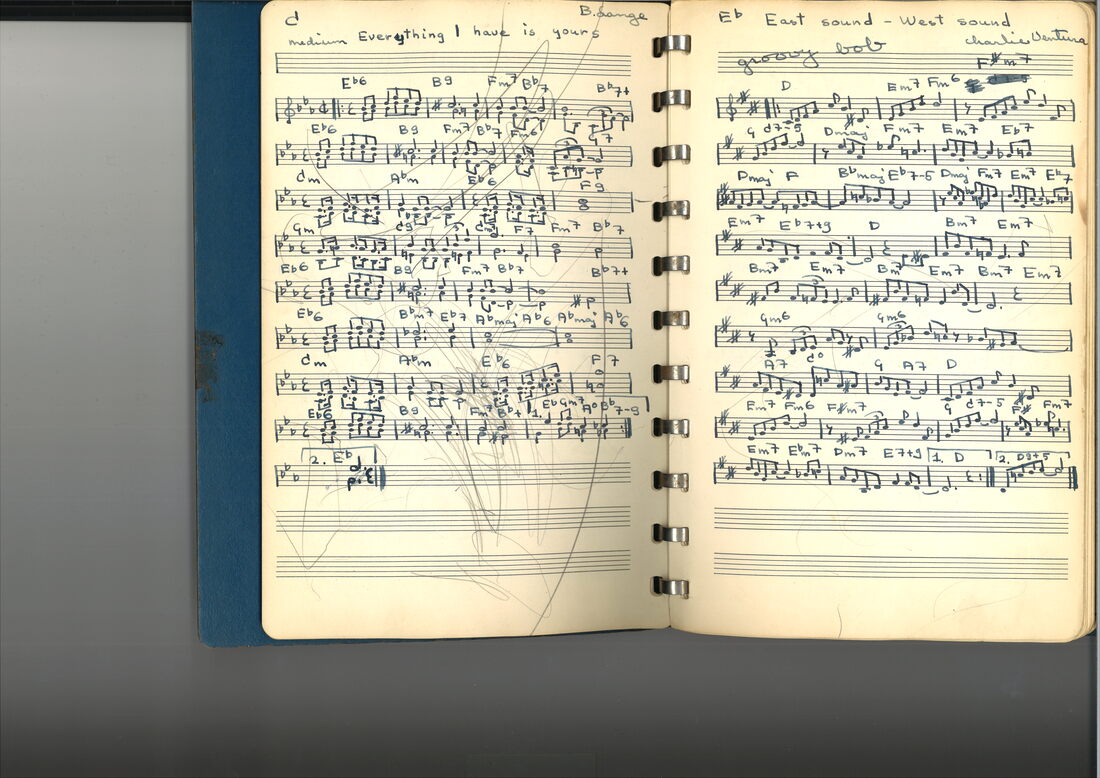 C B. Lange
medium Everything I have is yours
Eb6 B9 Fm7 Bb7 Bb7+
Eb6 B9 Fm7 Bb7 Fm6 G7
Cm Abm Eb6 F9
Gm C9 Cm F7 Fm7 Bb7
Eb6 B9 Fm7 Bb7 Bb7+
Eb6 Bbm7 Eb7 Abmaj Ab6 Abmaj Ab6
Cm Abm Eb6 F7
Eb6 B9 Fm7 Bb7 1. Eb Gm7 Ao Bb7-9
2. Eb
Eb East sound - West sound
groovy bob Charlie Ventura
F#m7
D Em7 Fm6
G C7-5 Dmaj Fm7 Em7 Eb7
Dmaj F Bbmaj Eb7-5 Dmaj Fm7 Em7 Eb7
Em7 Eb7+9 D Bm7 Em7
Bm7 Em7 Bm7 Em7 Bm7 Em7
Gm6 Gm6
A7 Co G A7 D
Em7 Fm6 F#m7 G C7-5 F# Fm7
Em7 Ebm7 Dm7 E7+9 1. D 2. D9+5